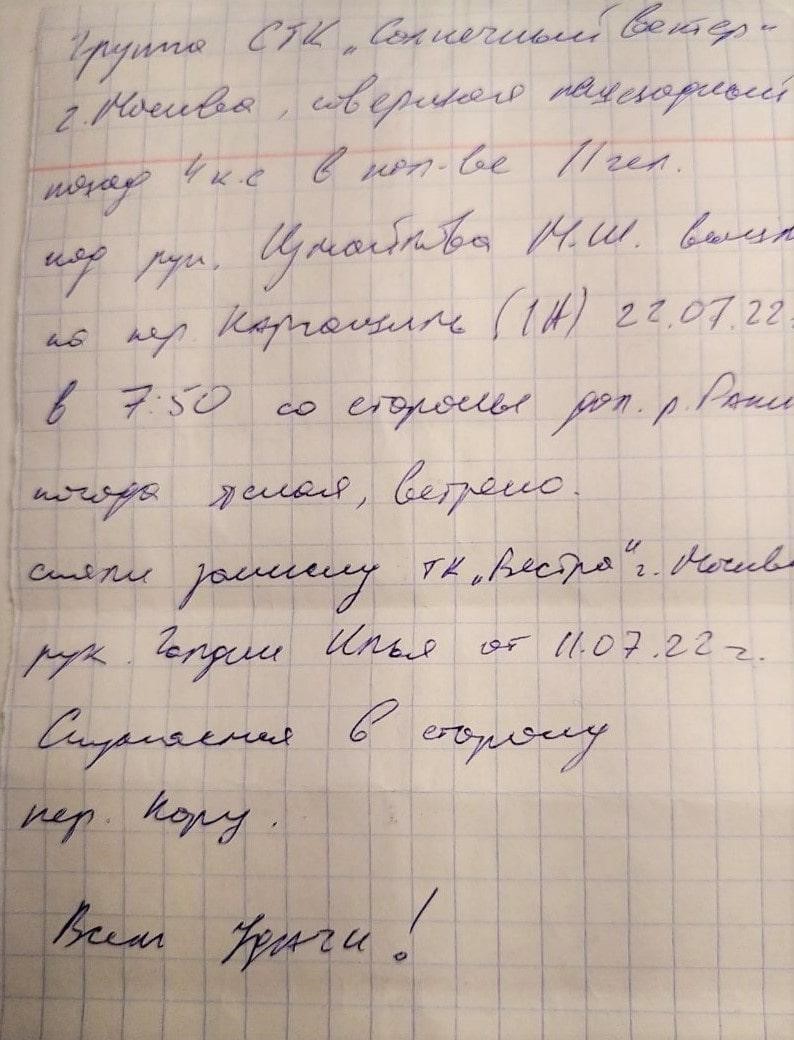 Группа СТК „Солнечный Ветер"
г. Москва, совершая пешеходный
поход 4 к.с в кол-ве 11 чел.
под рук. М.Ш.
на пер. (1А) 22.07.22
в 7:50 со стороны дол. р.
погода ясная, ветрено.
сняли записку ТК „Вестра" г. Москва
рук. Илья от 11.07.22 г.
Спускаемся в сторону
пер. Кору.
Всем Удачи!